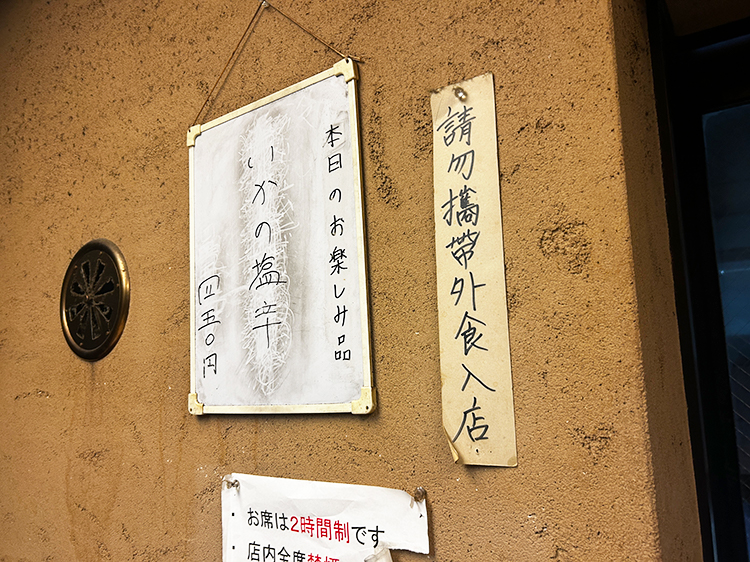 請勿攜帶外食入店
本日のお楽しみ品
いかの塩辛
四五〇円
・お席は2時間制です
・店内全席禁煙